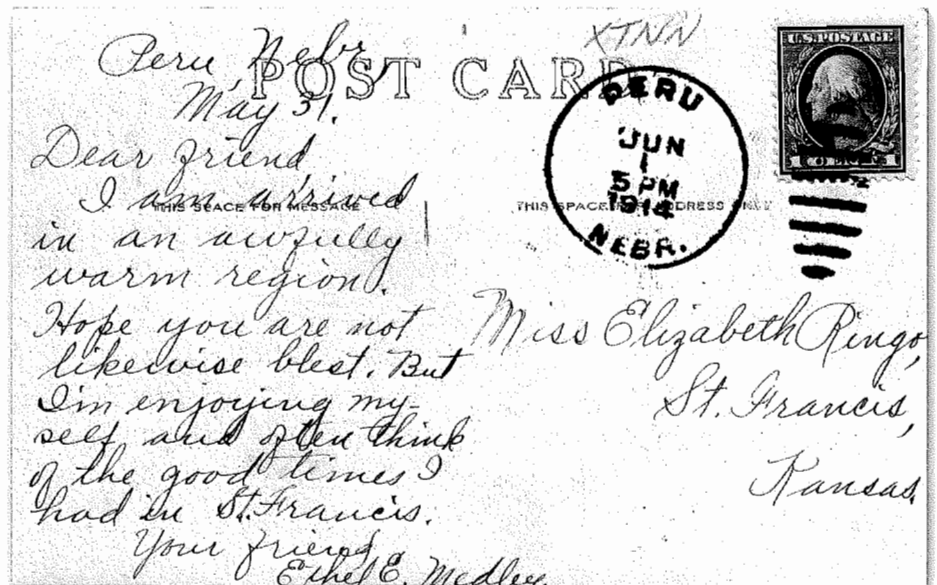 XTNN
POST CARD
U.S. POSTAGE
PERU
JUN
1
5 PM
1914
NEBR.
THIS SPACE FOR MESSAGE
THIS SPACE FOR ADDRESS ONLY
Peru, Nebr,
May 31.
Dear friend
I am arrived
in an awfully
warm region.
Hope you are not
likewise blest. But
I'm enjoying my-
self and often think
of the good times I
had in St. Francis.
Your friend,
Ethel E. Medley
Miss Elizabeth Ringo,
St. Francis,
Kansas.